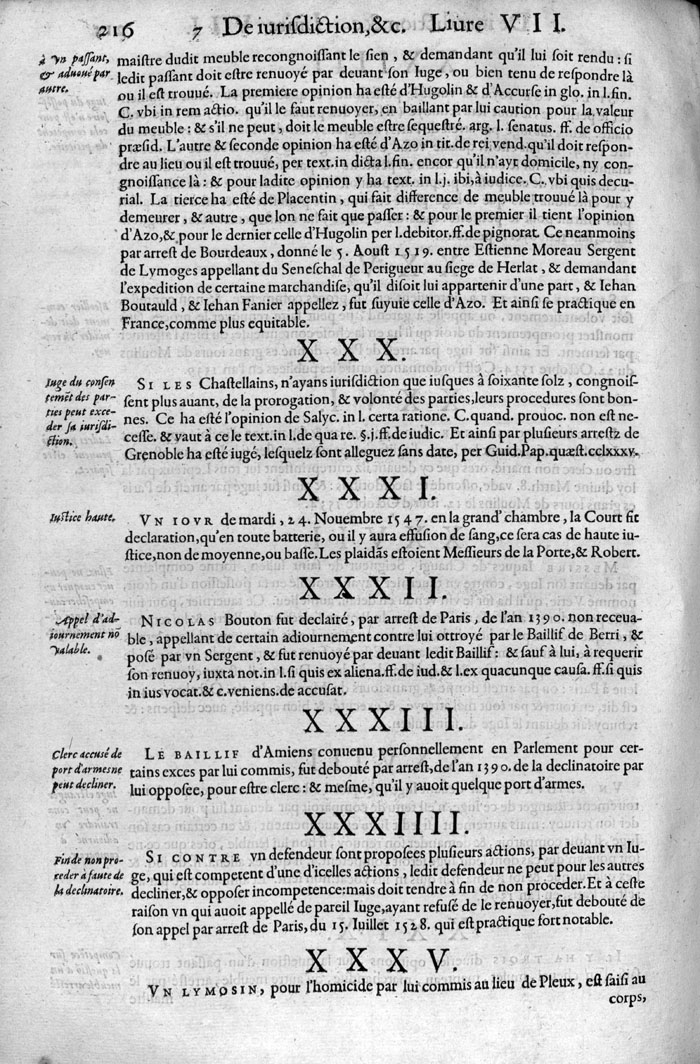 216 7 De iurisdiction, &c. Liure VII.
à vn passant,
& aduoué par
autre.
maistre dudit meuble recongnoissant le sien, & demandant qu'il lui soit rendu: si
ledit passant doit estre renuoyé par deuant son Iuge, ou bien tenu de respondre là
ou il est trouué. La premiere opinion ha esté d'Hugolin & d'Accurse in glo. in l. fin.
C. vbi in rem actio. qu'il le faut renuoyer, en baillant par lui caution pour la valeur
du meuble: & s'il ne peut, doit le meuble estre sequestré. arg. l. senatus. ff. de officio
præsid. L'autre & seconde opinion ha esté d'Azo in tit. de rei vend. qu'il doit respon-
dre au lieu ou il est trouué, per text. in dicta l. fin. encor qu'il n'ayt domicile, ny con-
gnoissance là: & pour ladite opinion y ha text. in l. j. ibi, à iudice. C. vbi quis decu-
rial. La tierce ha esté de Placentin, qui fait difference de meuble trouué là pour y
demeurer, & autre, que lon ne fait que passer: & pour le premier il tient l'opinion
d'Azo, & pour le dernier celle d'Hugolin per l. debitor. ff. de pignorat. Ce neanmoins
par arrest de Bourdeaux, donné le 5. Aoust 1519. entre Estienne Moreau Sergent
de Lymoges appellant du Seneschal de Perigueur au siege de Herlat, & demandant
l'expedition de certaine marchandise, qu'il disoit lui appartenir d'une part, & Iehan
Boutauld, & Iehan Fanier appellez, fut suyuie celle d'Azo. Et ainsi se practique en
France, comme plus equitable.
XXX.
Iuge du consen
temẽt des par-
ties peut exce-
der sa iurisdi-
ction.
SI LES Chastellains, n'ayans iurisdiction que iusques à soixante solz, congnois-
sent plus auant, de la prorogation, & volonté des parties, leurs procedures sont bon-
nes. Ce ha esté l'opinion de Salyc. in l. certa ratione. C. quand. prouoc. non est ne-
cesse. & vaut à ce le text. in l. de qua re. §. j. ff. de iudic. Et ainsi par plusieurs arrestz de
Grenoble ha esté iugé, lesquelz sont alleguez sans date, per Guid. Pap. quæst. cclxxxv.
XXXI.
Iustice haute.
VN IOVR de mardi, 24. Nouembre 1547. en la grand' chambre, la Court fit
declaration, qu'en toute batterie, ou il y aura effusion de sang, ce sera cas de haute iu-
stice, non de moyenne, ou basse. Les plaidãs estoient Messieurs de la Porte, & Robert.
XXXII.
Appel d'ad-
iournement nõ
valable.
NICOLAS Bouton fut declairé, par arrest de Paris, de l'an 1390. non receua-
ble, appellant de certain adiournement contre lui ottroyé par le Baillif de Berri, &
posé par vn Sergent, & fut renuoyé par deuant ledit Baillif: & sauf à lui, à requerir
son renuoy, iuxta not. in l. si quis ex aliena. ff. de iud. & l. ex quacunque causa. ff. si quis
in ius vocat. & c. veniens. de accusat.
XXXIII.
Clerc accusé de
port d'armes ne
peut decliner.
LE BAILLIF d'Amiens conuenu personnellement en Parlement pour cer-
tains exces par lui commis, fut debouté par arrest, de l'an 1390. de la declinatoire par
lui opposee, pour estre clerc: & mesme, qu'il y auoit quelque port d'armes.
XXXIIII.
Fin de non pro-
ceder à faute de
la declinatoire.
SI CONTRE vn defendeur sont proposees plusieurs actions, par deuant vn Iu-
ge, qui est competent d'une d'icelles actions, ledit defendeur ne peut pour les autres
decliner, & opposer incompetence: mais doit tendre à fin de non proceder. Et à ceste
raison vn qui auoit appellé de pareil Iuge, ayant refusé de le renuoyer, fut debouté de
son appel par arrest de Paris, du 15. Iuillet 1528. qui est practique fort notable.
XXXV.
VN LYMOSIN, pour l'homicide par lui commis au lieu de Pleux, est saisi au
corps,